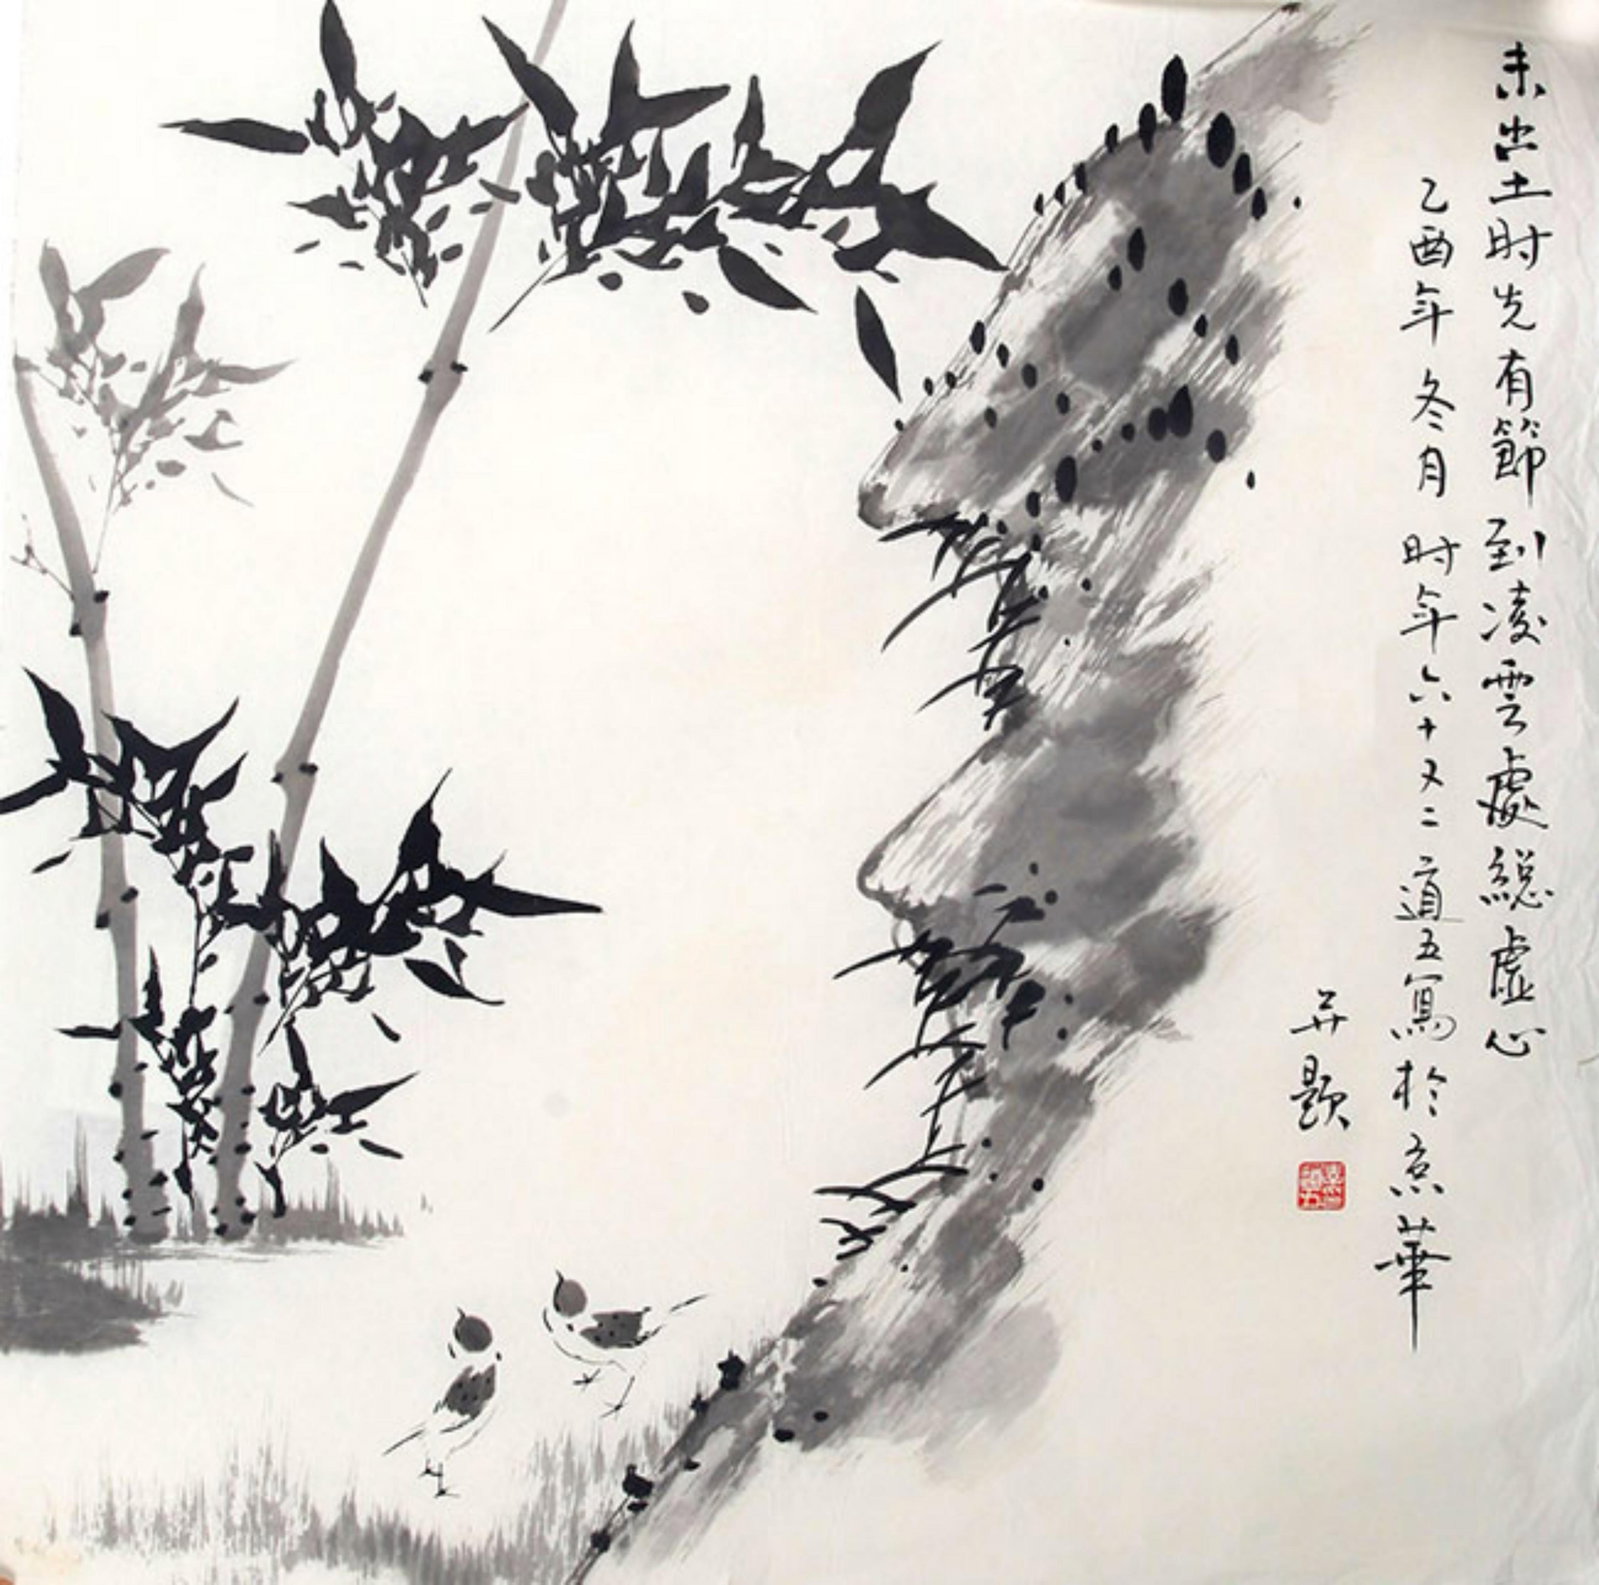 未出土时先有節到凌雲處總虛心
乙酉年冬月时年六十又二道五寫於京華
并题